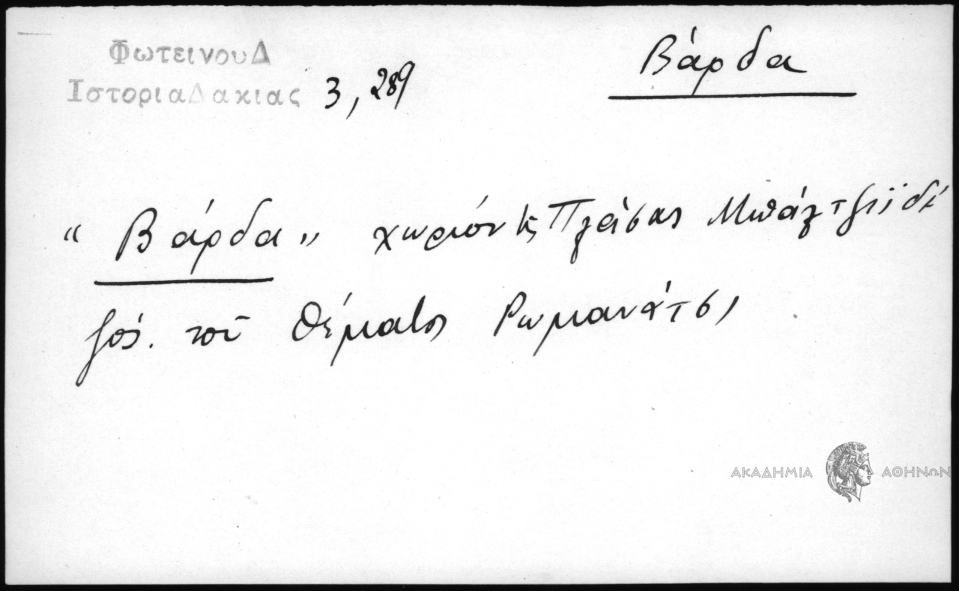 Φωτεινου Δ
Ιστορια Δακιας 3, 289
Βάρδα
"Βάρδα" χωρίον τῆς Πλάσας
τοῦ θέματος Ρωμανάτσι
ΑΚΑΔΗΜΙΑ ΑΘΗΝΩΝ